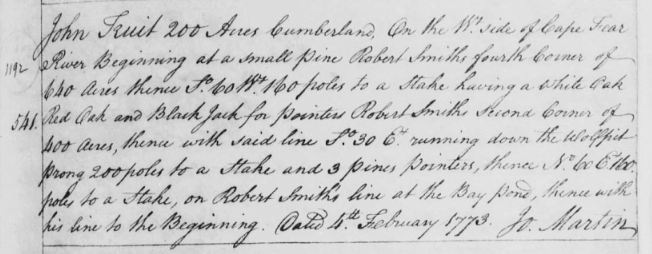 John Fruit 200 Acres Cumberland, On the Wt. side of Cape Fear
River Beginning at a small pine Robert Smiths fourth Corner of
1192
640 Acres thence So. 60 Wt. 160 poles to a Stake having a White Oak
541.
Red Oak and Black Jack for pointers Robert Smiths Second Corner of
400 Acres, thence with said line So. 30 Et. running down the Wolfpit
prong 200 poles to a Stake and 3 pines pointers, thence No. 60 Et. 160.
poles to a Stake, on Robert Smith's line at the Bay Pond, thence with
his line to the Beginning. Dated 4th. February 1773. Jo. Martin